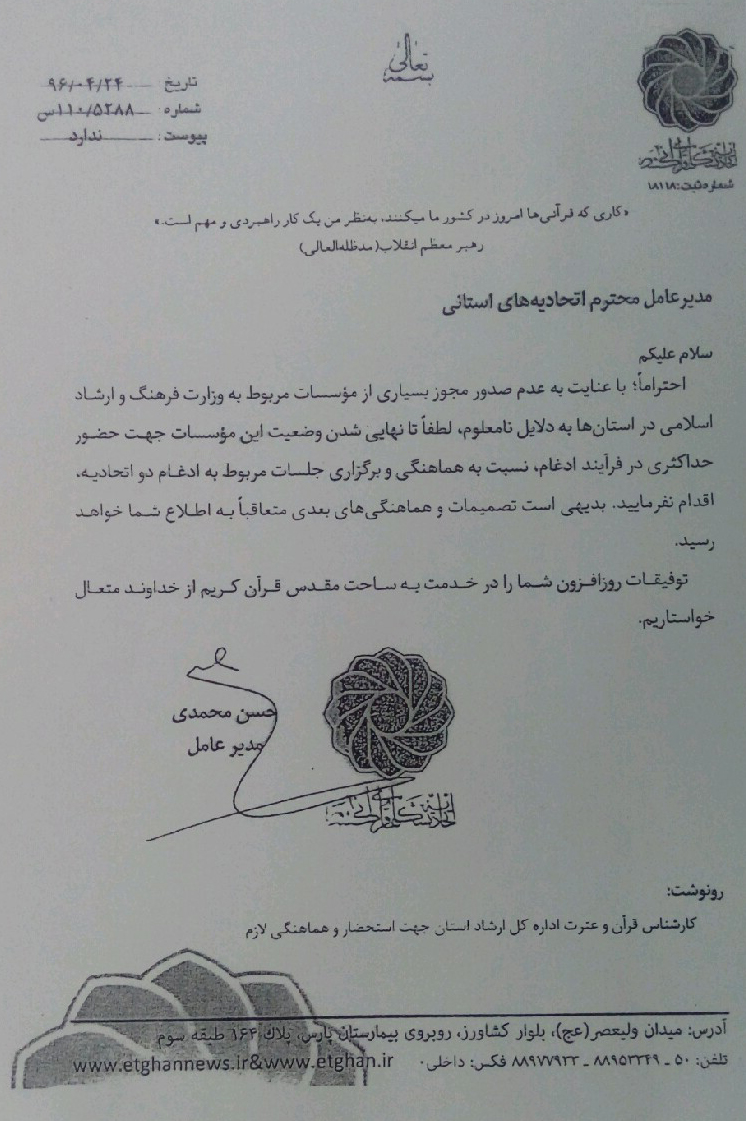 بسمه تعالی
تاریخ: ۹۶/۰۴/۲۴
شماره: ۱۱۰/۵۲۸۸س
پیوست: ندارد
شماره ثبت: ۱۸۱۱۸
«کاری که قرآنی‌ها امروز در کشور ما میکنند، به‌نظر من یک کار راهبردی و مهم است.»
رهبر معظم انقلاب(مدظله‌العالی)
مدیرعامل محترم اتحادیه‌های استانی
سلام علیکم
احتراماً؛ با عنایت به عدم صدور مجوز بسیاری از مؤسسات مربوط به وزارت فرهنگ و ارشاد
اسلامی در استان‌ها به دلایل نامعلوم، لطفاً تا نهایی شدن وضعیت این مؤسسات جهت حضور
حداکثری در فرآیند ادغام، نسبت به هماهنگی و برگزاری جلسات مربوط به ادغام دو اتحادیه،
اقدام نفرمایید. بدیهی است تصمیمات و هماهنگی‌های بعدی متعاقباً به اطلاع شما خواهد
رسید.
توفیقات روزافزون شما را در خدمت به ساحت مقدس قرآن کریم از خداوند متعال
خواستاریم.
حسن محمدی
مدیر عامل
رونوشت:
کارشناس قرآن و عترت اداره کل ارشاد استان جهت استحضار و هماهنگی لازم
آدرس: میدان ولیعصر(عج)، بلوار کشاورز، روبروی بیمارستان پارس، پلاک ۱۶۴ طبقه سوم
تلفن: ۵۰ ـ ۸۸۹۵۳۳۴۹ ـ ۸۸۹۷۷۹۳۳ فکس: داخلی ۰ www.etghannews.ir&www.etghan.ir